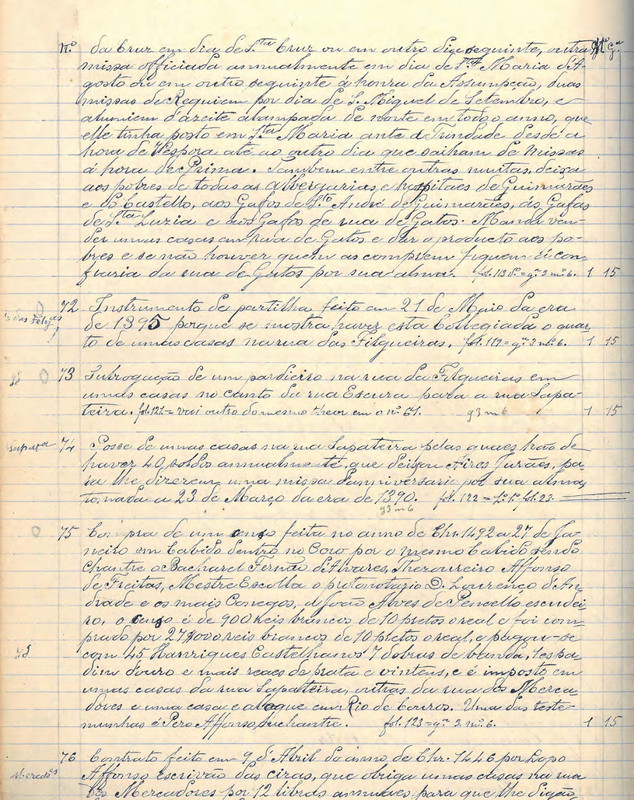 Nº. da Cruz em dia de Sta Cruz ou em outro dia seguinte, outra
missa officiada annualmente em dia de Sta Maria d'A-
gosto ou em outro seguinte á honra da Assumpção, duas
missas de Requiem por dia de S. Miguel de Setembro, e
alumiem d'azeite a lampada de noute em todo o anno, que
elle tinha posto em Sta Maria ante a Trindade desde a
hora de Vespora até ao outro dia que saiham de missas
á hora de Prima. Tambem entre outras muitas, deixa
aos pobres de todas as albergarias e hospitaes de Guimarães
e do Castello, aos Gafos de Sto André de Guimarães, ás Gafas
de Sta Luzia e aos Gafos de rua de Gatos. Manda ven-
der umas casas em rua de Gatos e dar o producto aos po-
bres e se não houver quem as comprem fiquem á con-
fraria da rua de Gatos por sua alma. fol. 113 = gª 2 m. 6. 1 15
72 Instrumento de partilha feito em 21 de Maio da era
de 1395 porque se mostra haver esta Collegiada o quar-
to de umas casas na rua das Filgueiras. fol. 119 = gª 2 m. 6. 1 15
73 Subrogação de um pardieiro na rua da Filgueiras em
umas casas no canto da rua Escura para a rua Sapa-
teira. fol. 122 = vai outro do mesmo theor em o nº 67. g 3 m 6 1 15
74 Posse de umas casas na rua Sapateira pelas quaes hão de
haver 40 soldos annualmente que deixou Aires Jurães, pa-
ra lhe dizerem uma missa d'anniversario por sua alma,
tomada a 23 de Março da era de 1390. fol. 122 = fol. 23.
g 3 m 6
75 Compra de um censo feita no anno de Chr. 1492 a 27 de Ja-
neiro em Cabido dentro no Coro por o mesmo Cabido sendo
Chantre o Bacharel Fernão d'Alvares, Thezoureiro Affonso
de Freitas, Mestre Escolla o protonotario D. Lourenço d'An-
drade e os mais Conegos, a João Alves de Pencello escudei-
ro, o censo é de 900 reis brancos de 10 pretos o real e foi com-
prado por 27$000 reis brancos de 10 pretos o real, e pagou-se
com 45 Hanrriques Castelhanos 7 dobras de banda, 1 espa-
dim d'ouro e mais reaes de prata e vintens, e é imposto em
umas casas da rua Sapateira, outras da rua dos Merca-
dores e uma casa e alaque em Rio de Couros. Uma das teste-
munhas é Pero Affonso fol. 123 = gª 3. m. 6. 1 15
76 Contrato feito em 9 d'Abril do anno de Chr. 1446 por Lopo
Affonso escrivão das cizas, que obriga umas casas na rua
dos Mercadores por 12 libras annuaes para que lhe digão